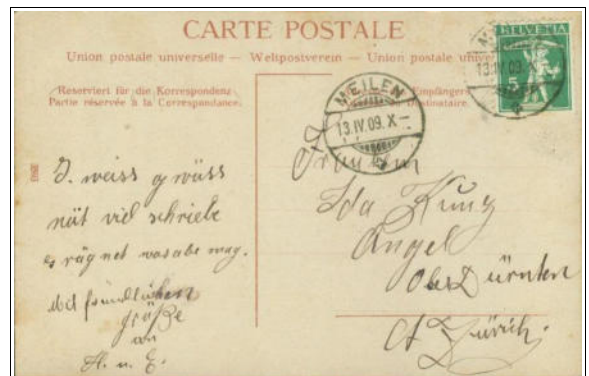 CARTE POSTALE
Union postale universelle — Weltpostverein — Union postale univer
Reserviert für die Korrespondenz
Partie réservée à la Correspondance.
Empfänger
Destinataire
HELVETIA
13.IV.09.
MEILEN
13.IV.09.X–
I. weiss gwüss
nüt viel schriebe
es rägnet was abe mag.
fründlichen
Grüße
an
H. u. E.
Fräulein
Ida Kung
Angel
Ober Dürnten
Ct Zürich.